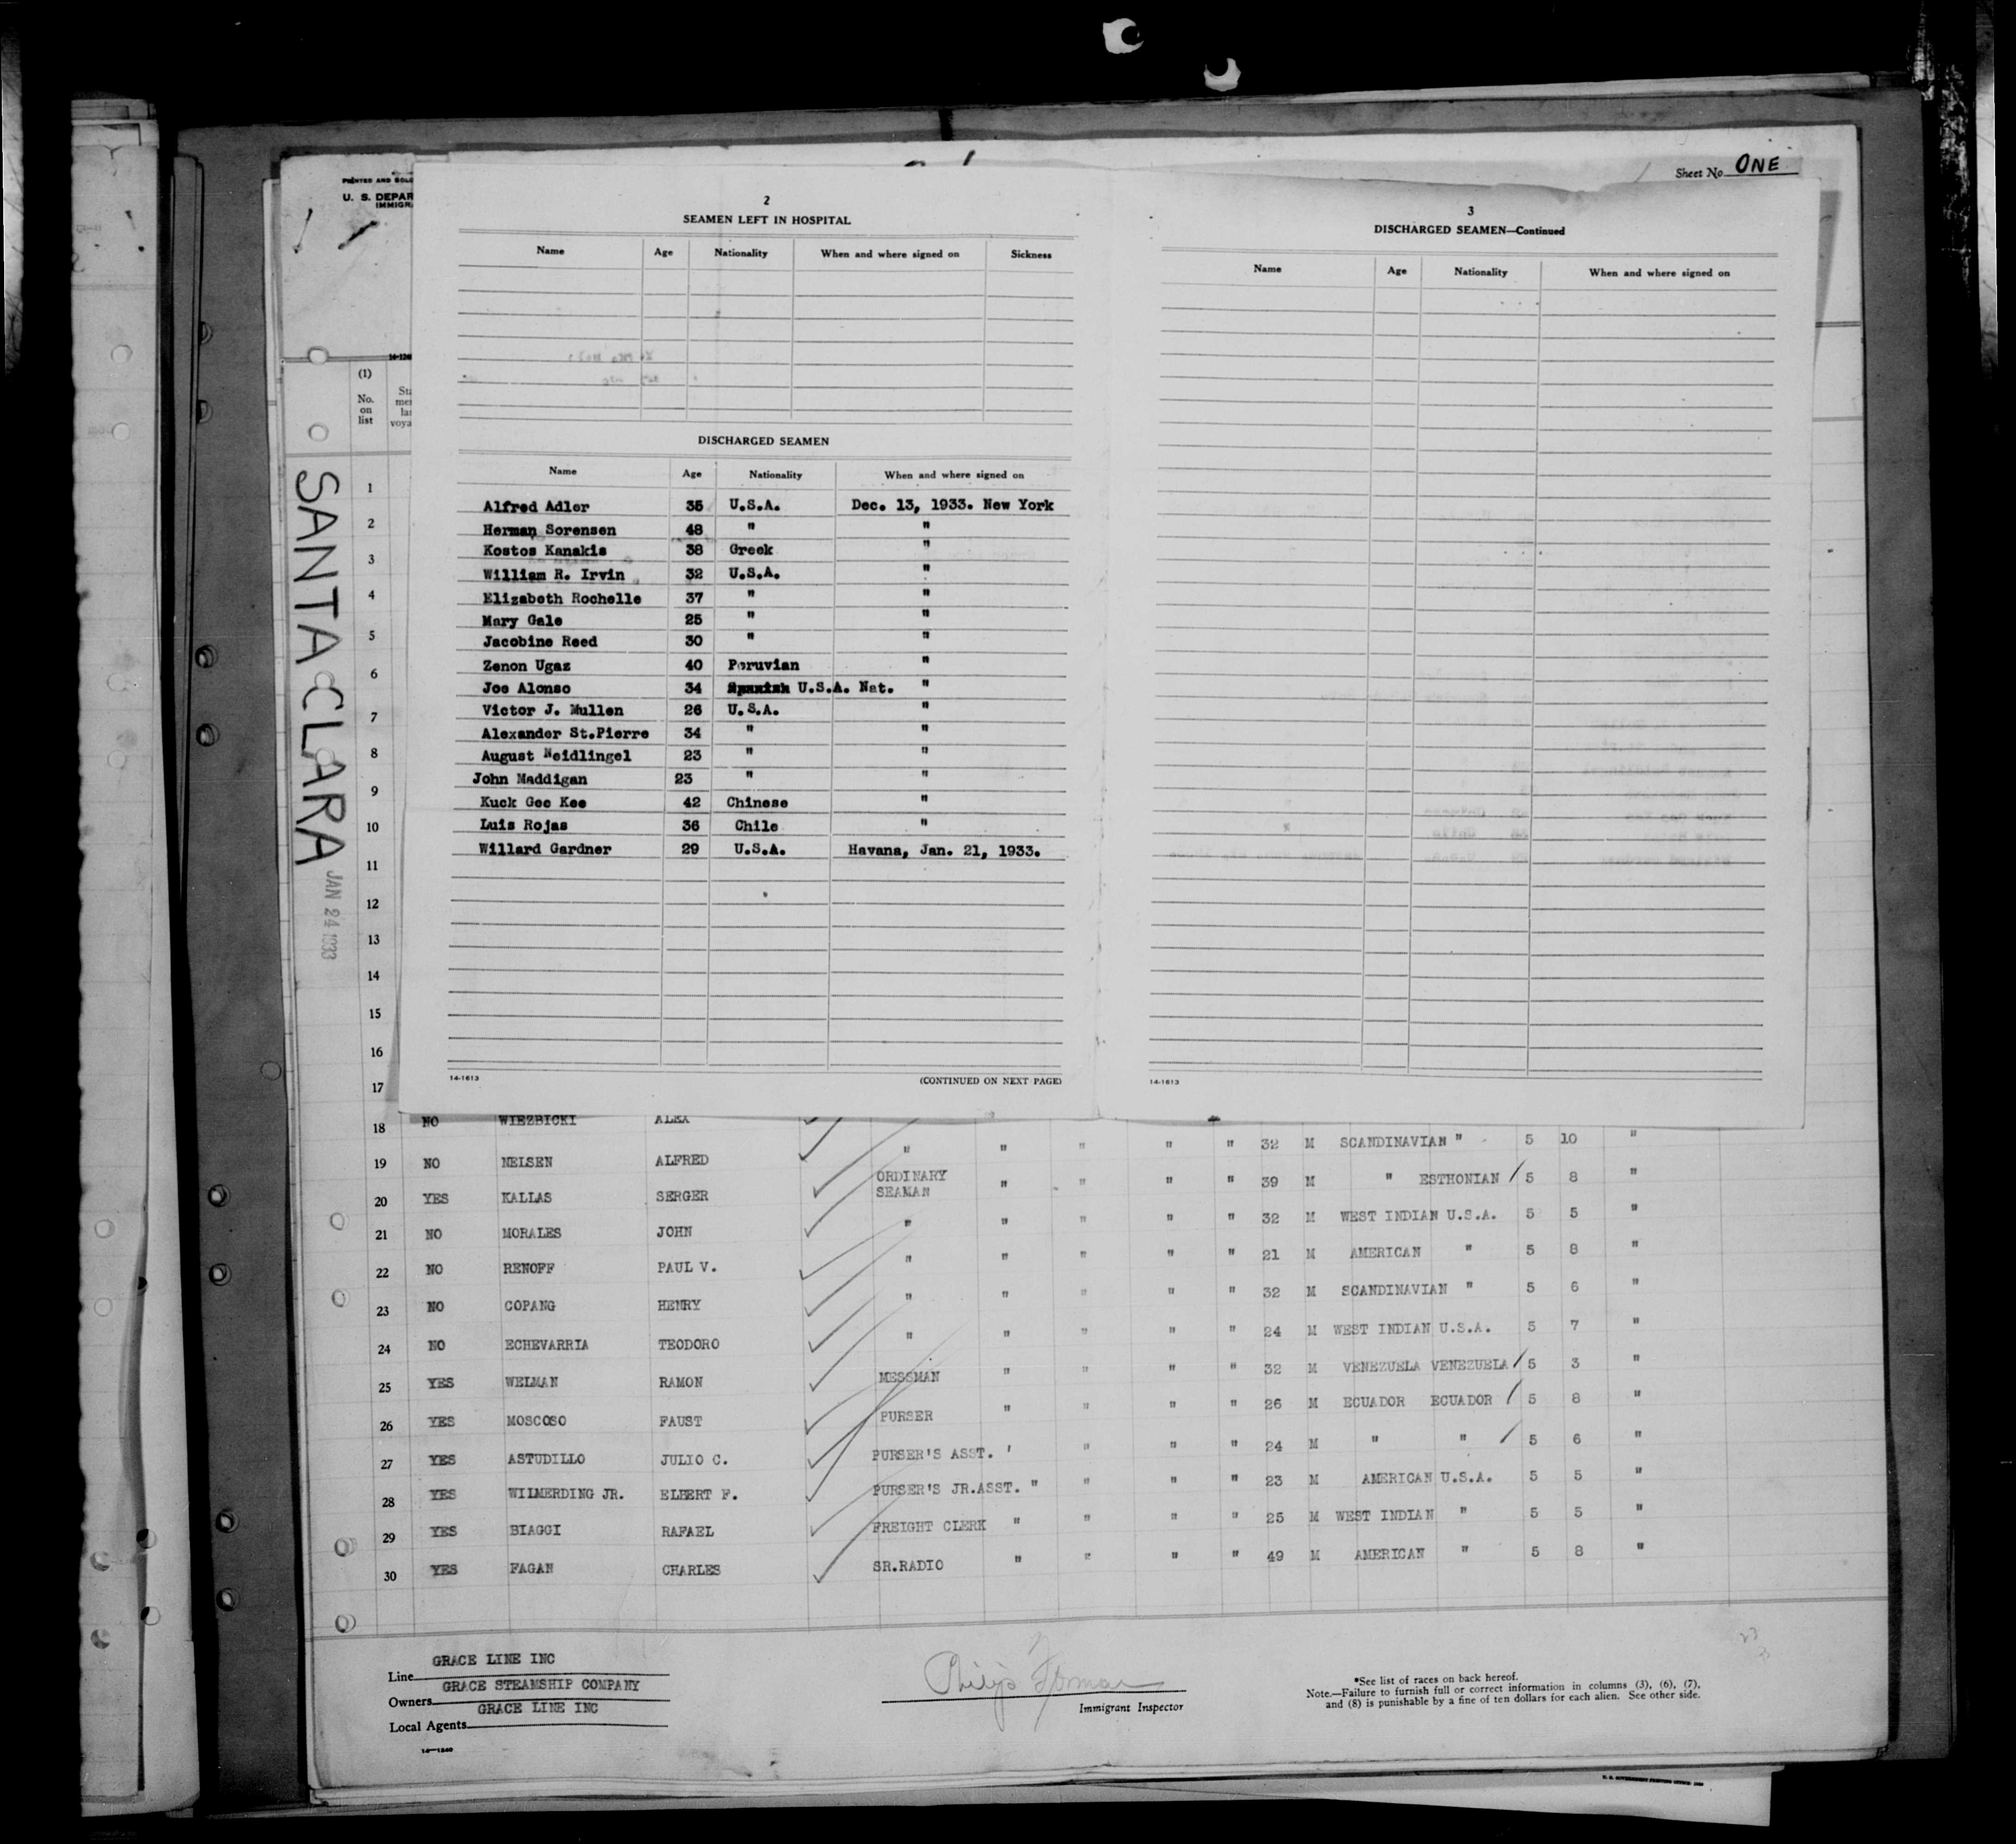 Sheet No. ONE
PRINTED AND SOLD
U. S. DEPAR
IMMIGRA
2
SEAMEN LEFT IN HOSPITAL
Name Age Nationality When and where signed on Sickness
DISCHARGED SEAMEN
Name Age Nationality When and where signed on
Alfred Adler 35 U.S.A. Dec. 13, 1933. New York
Herman Sorensen 48 " "
Kostos Kanakis 38 Greek "
William R. Irvin 32 U.S.A. "
Elizabeth Rochelle 37 " "
Mary Gale 25 " "
Jacobine Reed 30 " "
Zenon Ugaz 40 Peruvian "
Joe Alonso 34 Spanish U.S.A. Nat. "
Victor J. Mullen 26 U.S.A. "
Alexander St.Pierre 34 " "
August Neidlingel 23 " "
John Maddigan 23 " "
Kuck Gee Kee 42 Chinese "
Luis Rojas 36 Chile "
Willard Gardner 29 U.S.A. Havana, Jan. 21, 1933.
14-1613
(CONTINUED ON NEXT PAGE)
3
DISCHARGED SEAMEN—Continued
Name Age Nationality When and where signed on
14-1613
(1)
No.
on
list
SANTA CLARA
JAN 24 1933
1
2
3
4
5
6
7
8
9
10
11
12
13
14
15
16
17
18 NO WIEZBICKI ALEX " " " " " 32 M SCANDINAVIAN " 5 10 "
19 NO NELSEN ALFRED ORDINARY SEAMAN " " " " 39 M " ESTHONIAN 5 8 "
20 YES KALLAS SERGER " " " " " 32 M WEST INDIAN U.S.A. 5 5 "
21 NO MORALES JOHN " " " " " 21 M AMERICAN " 5 8 "
22 NO RENOFF PAUL V. " " " " " 32 M SCANDINAVIAN " 5 6 "
23 NO COPANG HENRY " " " " " 24 M WEST INDIAN U.S.A. 5 7 "
24 NO ECHEVARRIA TEODORO MESSMAN " " " " 32 M VENEZUELA VENEZUELA 5 3 "
25 YES WELMAN RAMON PURSER " " " " 26 M ECUADOR ECUADOR 5 8 "
26 YES MOSCOSO FAUST PURSER'S ASST. ' " " " 24 M " " 5 6 "
27 YES ASTUDILLO JULIO C. PURSER'S JR.ASST. " " " " 23 M AMERICAN U.S.A. 5 5 "
28 YES WILMERDING JR. ELBERT F. FREIGHT CLERK " " " " 25 M WEST INDIAN " 5 5 "
29 YES BIAGGI RAFAEL SR.RADIO " " " " 49 M AMERICAN " 5 8 "
30 YES FAGAN CHARLES
Line GRACE LINE INC
Owners GRACE STEAMSHIP COMPANY
Local Agents GRACE LINE INC
14—1240
Immigrant Inspector
*See list of races on back hereof.
Note.—Failure to furnish full or correct information in columns (3), (6), (7),
and (8) is punishable by a fine of ten dollars for each alien. See other side.